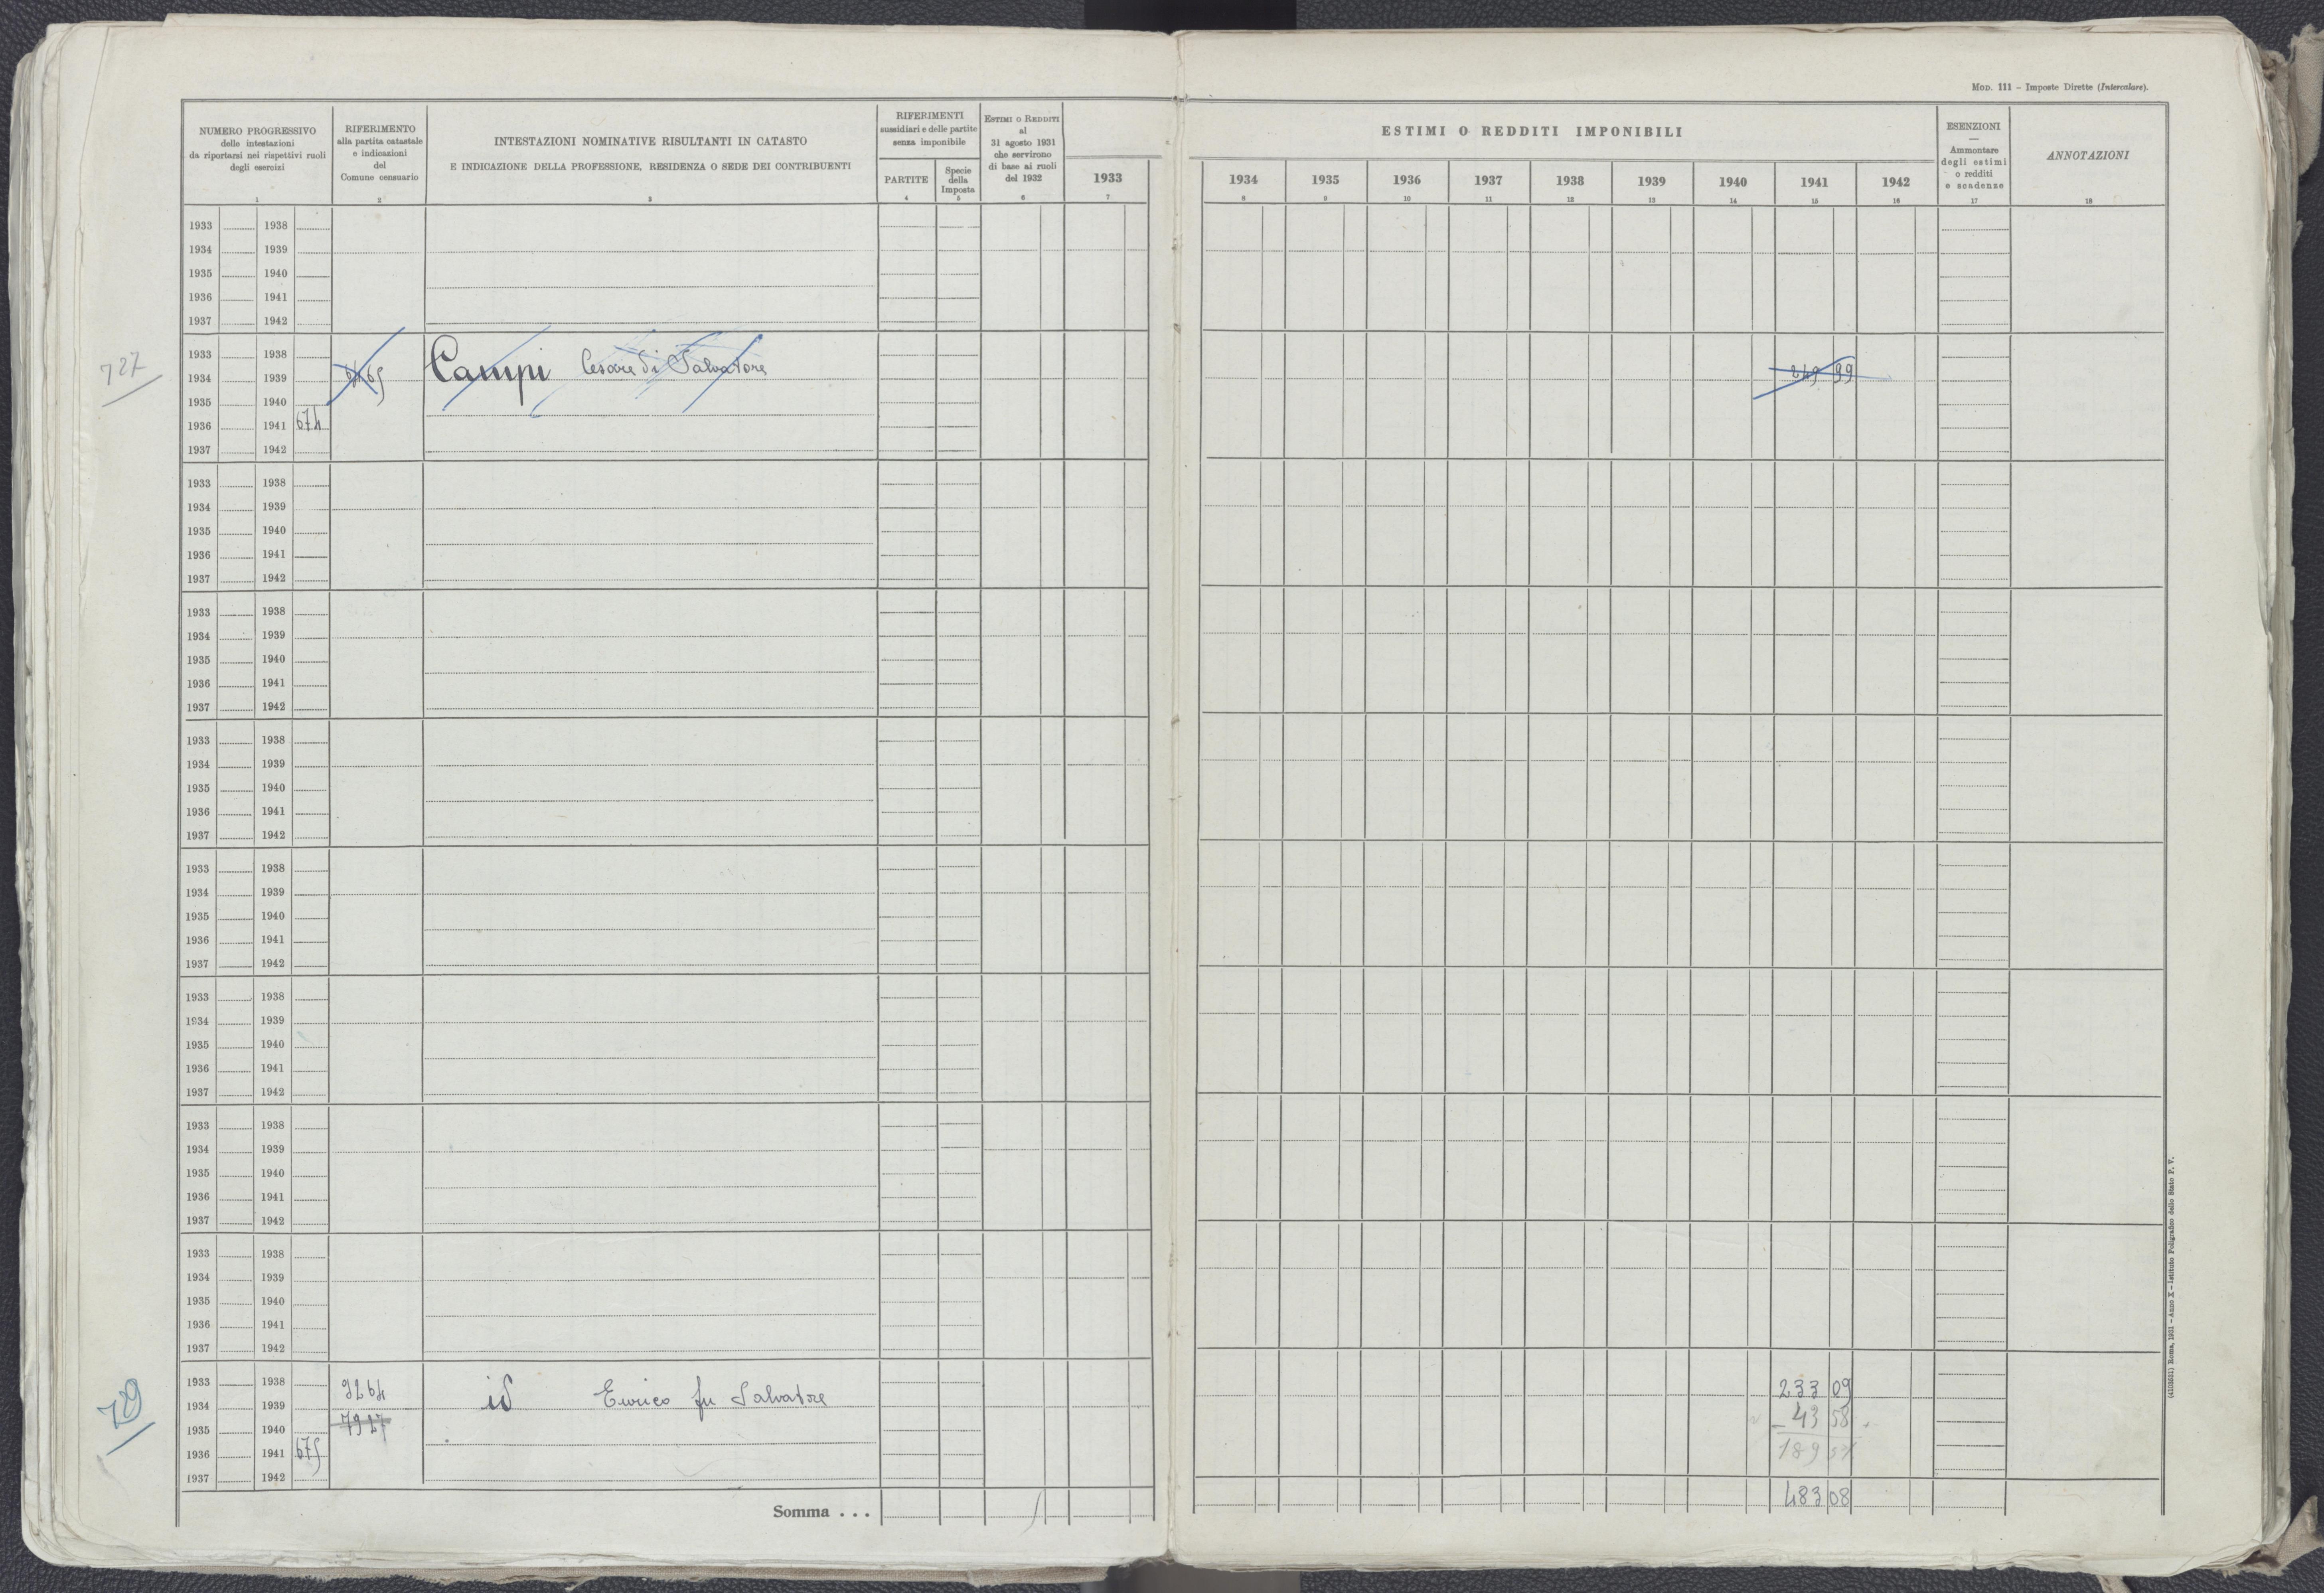 MOD. 111 – Imposte Dirette (Intercalare).
NUMERO PROGRESSIVO
delle intestazioni
da riportarsi nei rispettivi ruoli
degli esercizi
1
RIFERIMENTO
alla partita catastale
e indicazioni
del
Comune censuario
2
INTESTAZIONI NOMINATIVE RISULTANTI IN CATASTO
E INDICAZIONE DELLA PROFESSIONE, RESIDENZA O SEDE DEI CONTRIBUENTI
3
RIFERIMENTI
sussidiari e delle partite
senza imponibile
PARTITE
4
Specie
della
Imposta
5
ESTIMI O REDDITI
al
31 agosto 1931
che servirono
di base ai ruoli
del 1932
6
1933
7
ESTIMI O REDDITI IMPONIBILI
1934 1935 1936 1937 1938 1939 1940 1941 1942
8 9 10 11 12 13 14 15 16
ESENZIONI
—
Ammontare
degli estimi
o redditi
e scadenze
17
ANNOTAZIONI
18
1933 1938
1934 1939
1935 1940
1936 1941
1937 1942
727
1933 1938
Campi Cesare di Salvatore
1934 1939 249 99
1935 1940
1936 1941 674
1937 1942
1933 1938
1934 1939
1935 1940
1936 1941
1937 1942
1933 1938
1934 1939
1935 1940
1936 1941
1937 1942
1933 1938
1934 1939
1935 1940
1936 1941
1937 1942
1933 1938
1934 1939
1935 1940
1936 1941
1937 1942
1933 1938
1934 1939
1935 1940
1936 1941
1937 1942
1933 1938
1934 1939
1935 1940
1936 1941
1937 1942
1933 1938
1934 1939
1935 1940
1936 1941
1937 1942
729
1933 1938 9264 233 09
1934 1939 id Enrico fu Salvatore
1935 1940 7927 – 43 58
1936 1941 675 189 51
1937 1942
Somma . . . 483 08
(4105631) Roma, 1931 – Anno X – Istituto Poligrafico dello Stato P. V.